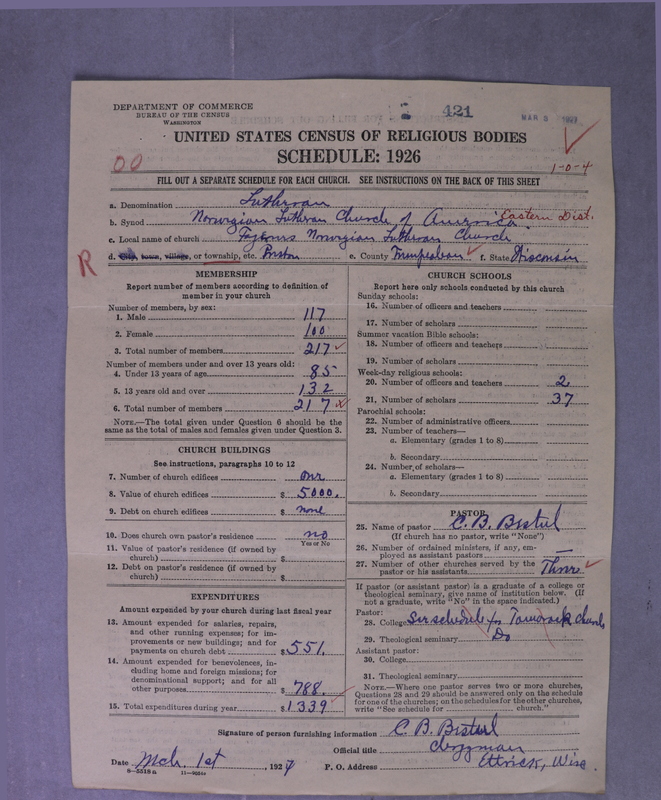 DEPARTMENT OF COMMERCE
BUREAU OF THE CENSUS
WASHINGTON
421
MAR 5 1927
UNITED STATES CENSUS OF RELIGIOUS BODIES
SCHEDULE: 1926
00
1-0-4
FILL OUT A SEPARATE SCHEDULE FOR EACH CHURCH. SEE INSTRUCTIONS ON THE BACK OF THIS SHEET
a. Denomination Lutheran
b. Synod Norwegian Lutheran Church of America Eastern Dist.
c. Local name of church Norwegian Lutheran Church
R
d. City, town, village, or township, etc. Preston e. County Trempealeau f. State Wisconsin
MEMBERSHIP
Report number of members according to definition of
member in your church
Number of members, by sex:
1. Male 117
2. Female 100
3. Total number of members 217
Number of members under and over 13 years old:
4. Under 13 years of age 85
5. 13 years old and over 132
6. Total number of members 217
NOTE.—The total given under Question 6 should be
same as the total of males and females given under Question 3.
CHURCH BUILDINGS
See instructions, paragraphs 10 to 12
7. Number of church edifices one
8. Value of church edifices $ 5000.
9. Debt on church edifices $ none
10. Does church own pastor's residence? no
Yes or No
11. Value of pastor's residence (if owned by
church) $
12. Debt on pastor's residence (if owned by
church) $
EXPENDITURES
Amount expended by your church during last fiscal year
13. Amount expended for salaries, repairs,
and other running expenses; for im-
provements or new buildings; and for
payments on church debt $ 551.
14. Amount expended for benevolences, in-
cluding home and foreign missions; for
denominational support; and for all
other purposes $ 788.
15. Total expenditures during year $ 1339
CHURCH SCHOOLS
Report here only schools conducted by this church
Sunday schools:
16. Number of officers and teachers
17. Number of scholars
Summer vacation Bible schools:
18. Number of officers and teachers
19. Number of scholars
Week-day religious schools:
20. Number of officers and teachers 2
21. Number of scholars 37
Parochial schools:
22. Number of administrative officers
23. Number of teachers—
a. Elementary (grades 1 to 8)
b. Secondary
24. Number of scholars—
a. Elementary (grades 1 to 8)
b. Secondary
PASTOR
25. Name of pastor C. B.
(If church has no pastor, write "None")
26. Number of ordained ministers, if any, em-
ployed as assistant pastors —
27. Number of other churches served by the
pastor or his assistants Three
If pastor (or assistant pastor) is a graduate of a college or
theological seminary, give name of institution below. (If
not a graduate, write "No" in the space indicated.)
Pastor:
28. College See schedule for Tamarack church
29. Theological seminary Do
Assistant pastor:
30. College
31. Theological seminary
NOTE.—Where one pastor serves two or more churches,
Questions 28 and 29 should be answered only on the schedule
for one of the churches; on the schedules for the other churches,
write "See schedule for church."
Signature of person furnishing information C. B.
Official title clergyman
Date Mch. 1st, 1927 P. O. Address Ettrick, Wise
8—5518a 11—9664